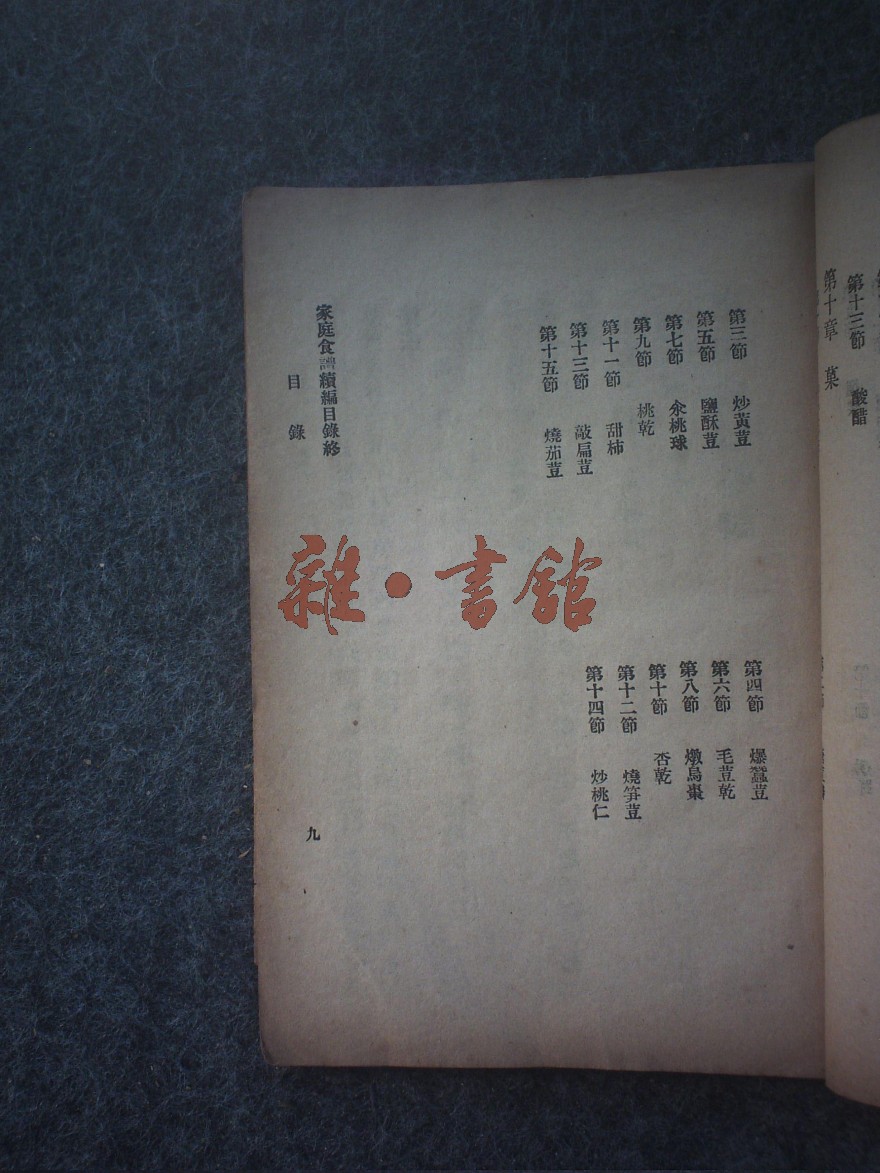 第十三節　酸醋
第十章　菓
第三節　炒黃荳
第四節　爆蠶荳
第五節　鹽酥荳
第六節　毛荳乾
第七節　氽桃球
第八節　燉烏棗
第九節　桃乾
第十節　杏乾
第十一節　甜柿
第十二節　燒笋荳
第十三節　敲扁荳
第十四節　炒桃仁
第十五節　燒茄荳
家庭食譜續編目錄終
目錄
九
雜·書館